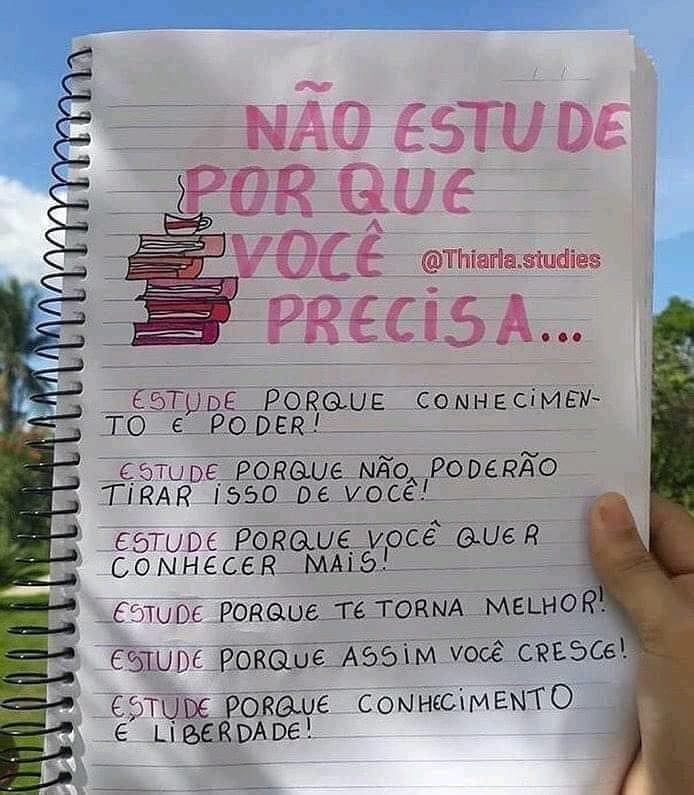 NÃO ESTUDE
POR QUE
VOCÊ
@Thiarla.studies
PRECISA...
ESTUDE PORQUE CONHECIMEN-
TO É PODER!
ESTUDE PORQUE NÃO PODERÃO
TIRAR ISSO DE VOCÊ!
ESTUDE PORQUE VOCÊ QUER
CONHECER MAIS!
ESTUDE PORQUE TE TORNA MELHOR!
ESTUDE PORQUE ASSIM VOCÊ CRESCE!
ESTUDE PORQUE CONHECIMENTO
É LIBERDADE!